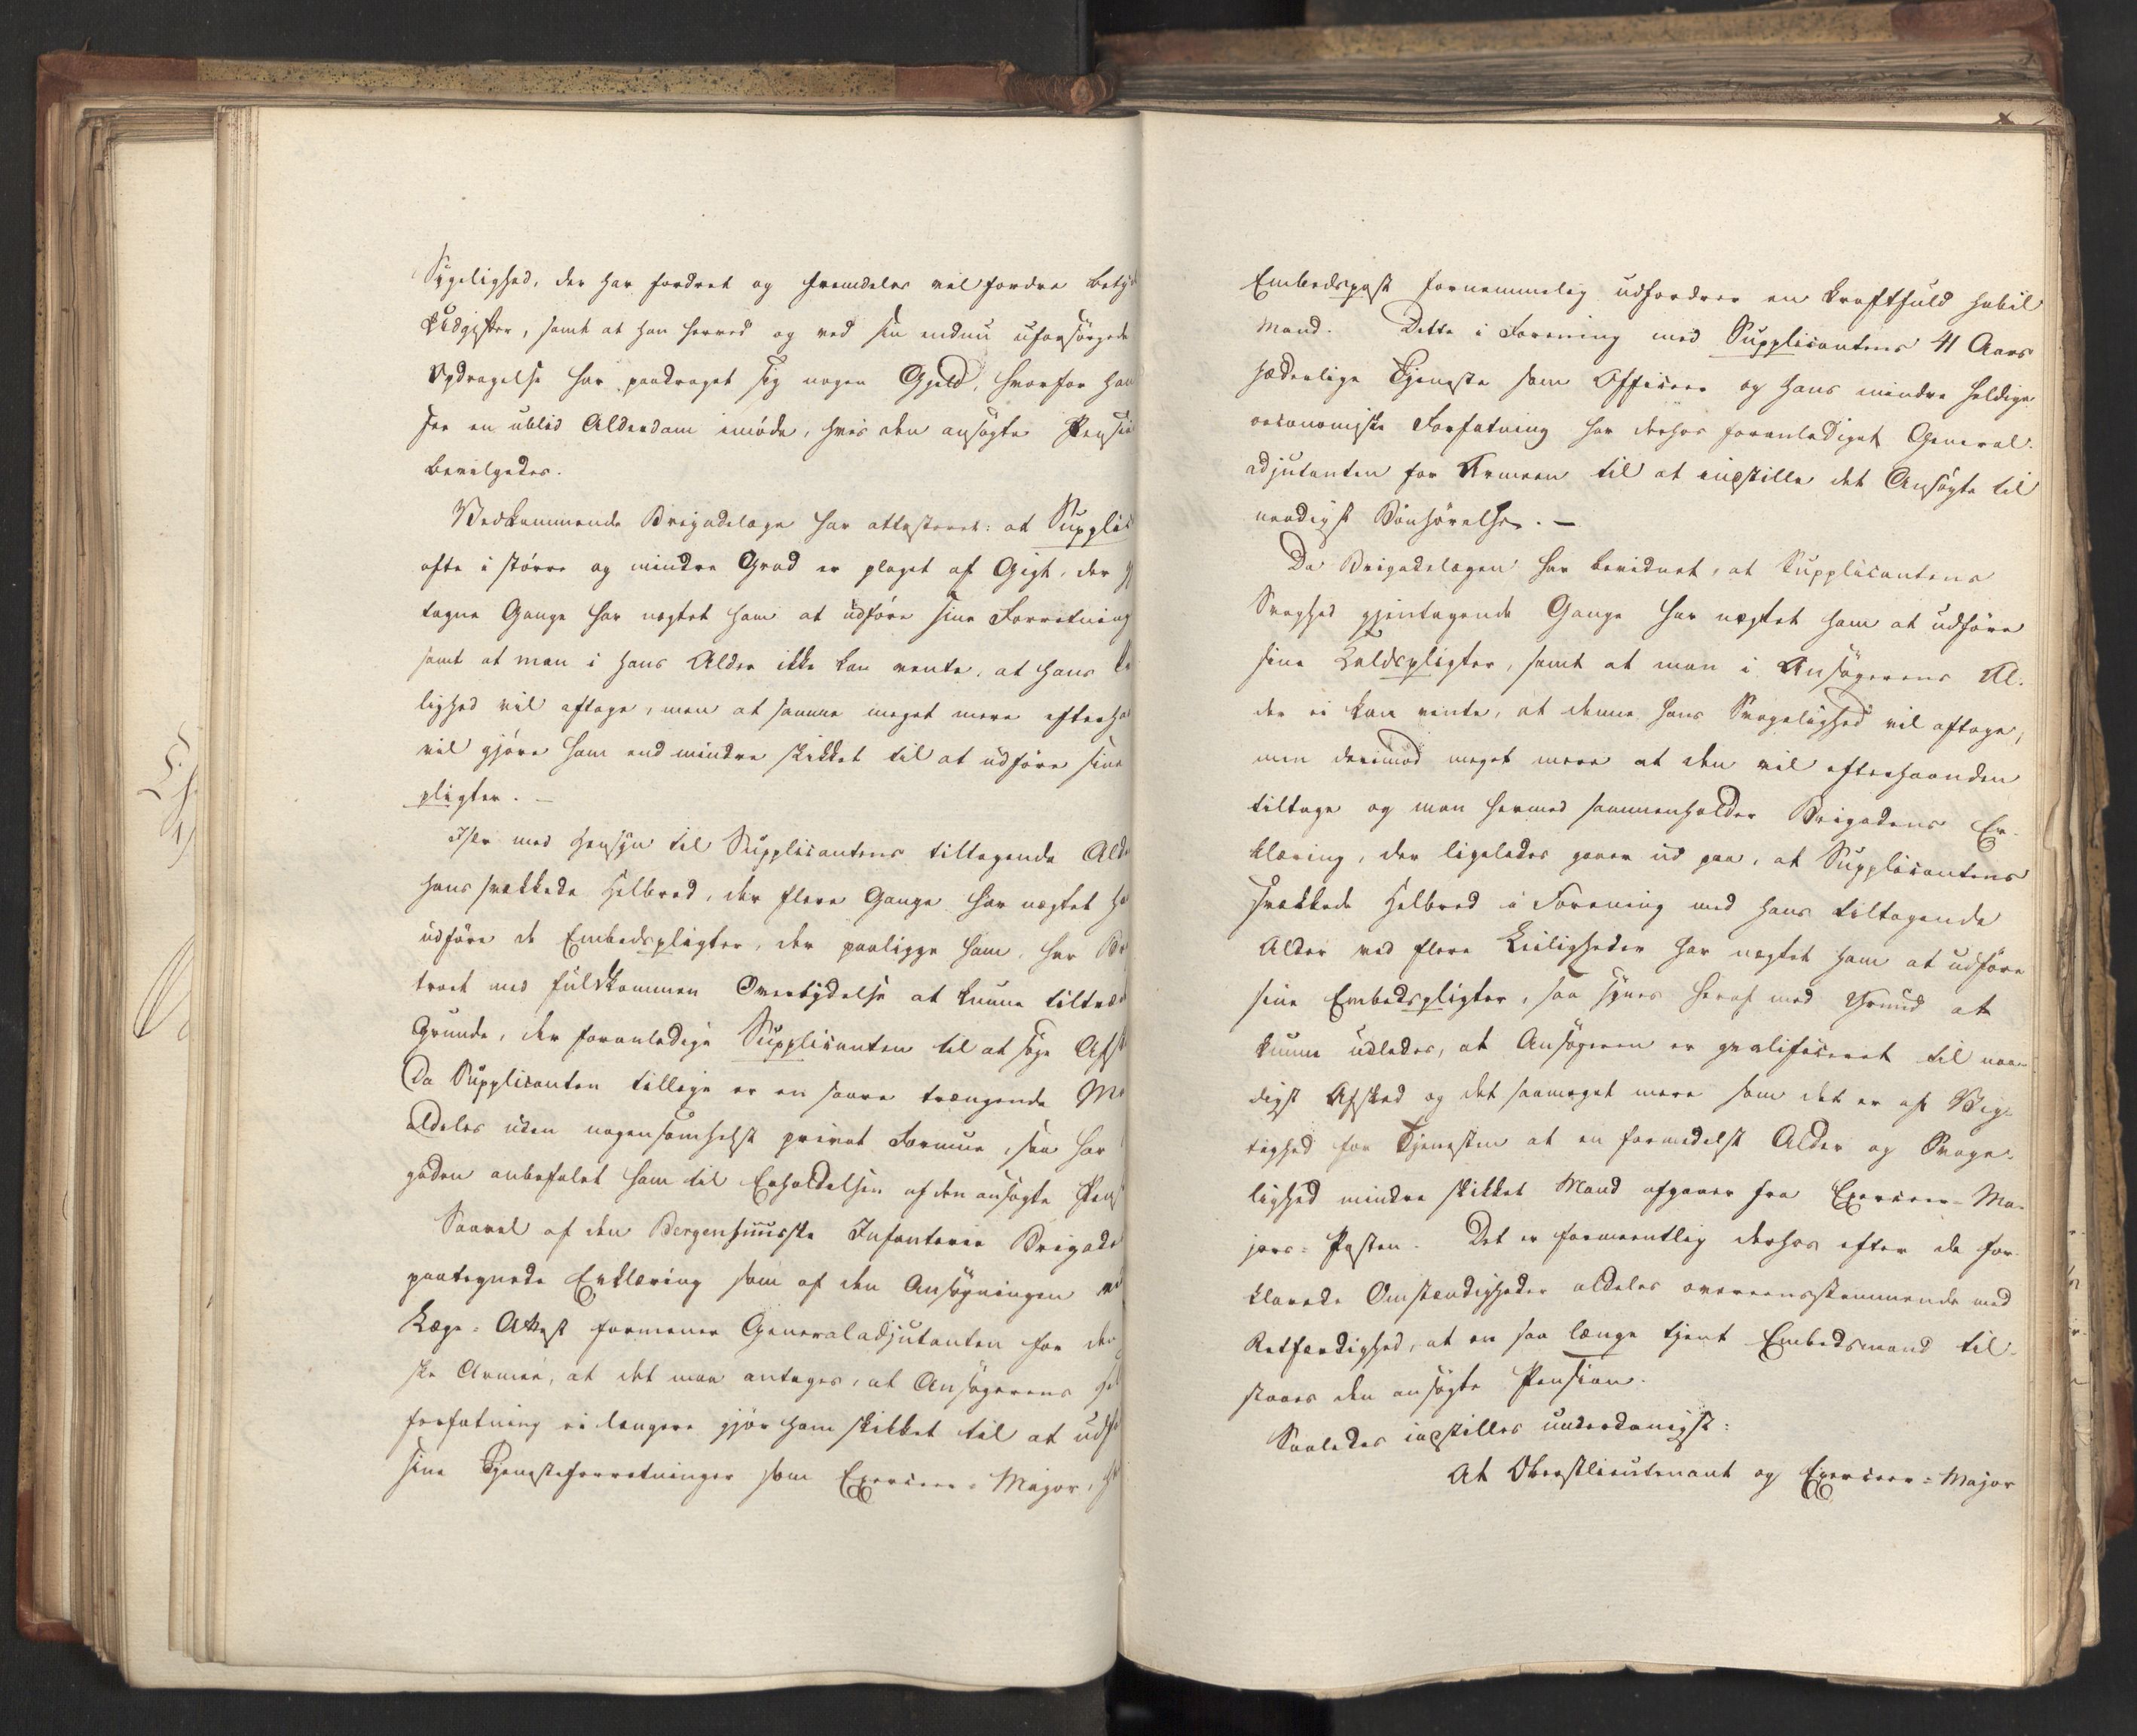 Sygelighed, der har fordret og fremdeles vil fordre betyd
Udgifter, samt at han herved og ved sin endnu uforsørgede
Opdragelse har paadraget sig nogen Gjeld, hvorfor han
seer en ublid Alderdom imøde, hvis den ansøgte Pensio
bevilgedes.
Vedkommende Brigadelæge har attesteret: at Supplic
ofte i større og mindre Grad er plaget af Gigt, der gj
tagne Gange har negtet ham at udføre sine Forretning
samt at man i hans Alder ikke kan vente, at hans
lighed vil aftage, men at samme meget mere efterha
vil gjøre ham end mindre skikket til at udføre sine
pligter. —
Især med Hensyn til Supplicantens tiltagende Alde
hans svækkede Helbred, der flere Gange har negtet ha
udføre de Embedspligter, der paaligge ham, har Br
troet med fuldkommen Overtydelse at kunne tiltræd
Grunde, der foranledige Supplicanten til at søge Afsk
Da Supplicanten tillige er en saare trængende Ma
aldeles uden nogensomhelst privat Formue, saa har
gaden anbefalet ham til Erholdelsen af den ansøgte Pens
Saavel af den Bergenhuusske Infanterie Brigade
paategnede Erklæring som af den Ansøgningen ve
Læge-Attest formener Generaladjutanten for den
ske Armee, at det maa antages, at Ansøgerens Hel
forfatning ei længere gjør ham skikket til at udfø
sine Tjenesteforretninger som Exerceer-Major, h
Embedspost fornemmelig udfordrer en kraftfuld habil
Mand. Dette i Forening med Supplicantens 41 Aars
hæderlige Tjeneste som Officeer og hans mindre heldige
oeconomiske Forfatning har derhos foranlediget General-
adjutanten for Armeen til at indstille det Ansøgte til
naadigst Bønhørelse. —
Da Brigadelægen har bevidnet, at Supplicantens
Svaghed gjentagende Gange har negtet ham at udføre
sine Kaldspligter, samt at man i Ansøgerens Al-
der ei kan vente, at denne hans Svagelighed vil aftage,
men derimod meget mere at den vil efterhaanden
tiltage og man hermed sammenholder Brigadens Er-
klæring, der ligeledes gaaer ud paa, at Supplicantens
svækkede Helbred i Forening med hans tiltagende
Alder ved flere Leiligheder har negtet ham at udføre
sine Embedspligter, saa synes heraf med Grund at
kunne udledes, at Ansøgeren er qvalificeret til naa-
digst Afsked og det saameget mere som det er af Vig-
tighed for Tjenesten at en formedelst Alder og Svage-
lighed mindre skikket Mand afgaaer fra Exerceer-Ma-
jors-Posten. Det er formeentlig derhos efter de for-
klarede Omstændigheder aldeles overeensstemmende med
Retfærdighed, at en saa længe tjent Embedsmand til-
staaes den ansøgte Pension.
Saaledes indstilles underdanigst:
At Oberstlieutenant og Exerceer-Major